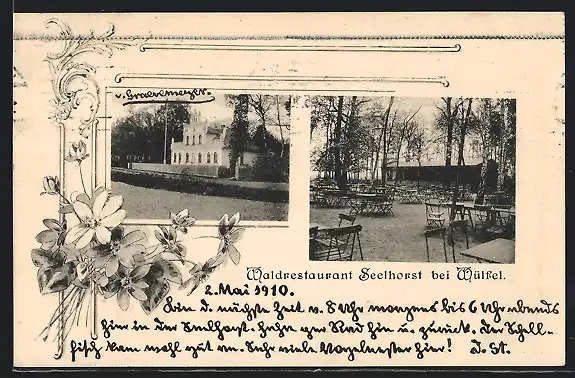 v. Graevemeyer.
Waldrestaurant Seelhorst bei Wülfel.
2. Mai 1910.
Bin d. nächste Zeit v. 8 Uhr morgens bis 6 Uhr abends
hier in der Seelhorst. Fahre per Rad hin u. zurück. Der Schell-
fisch kam wohl gut an. Sehr viele Vogelnester hier! J. St.